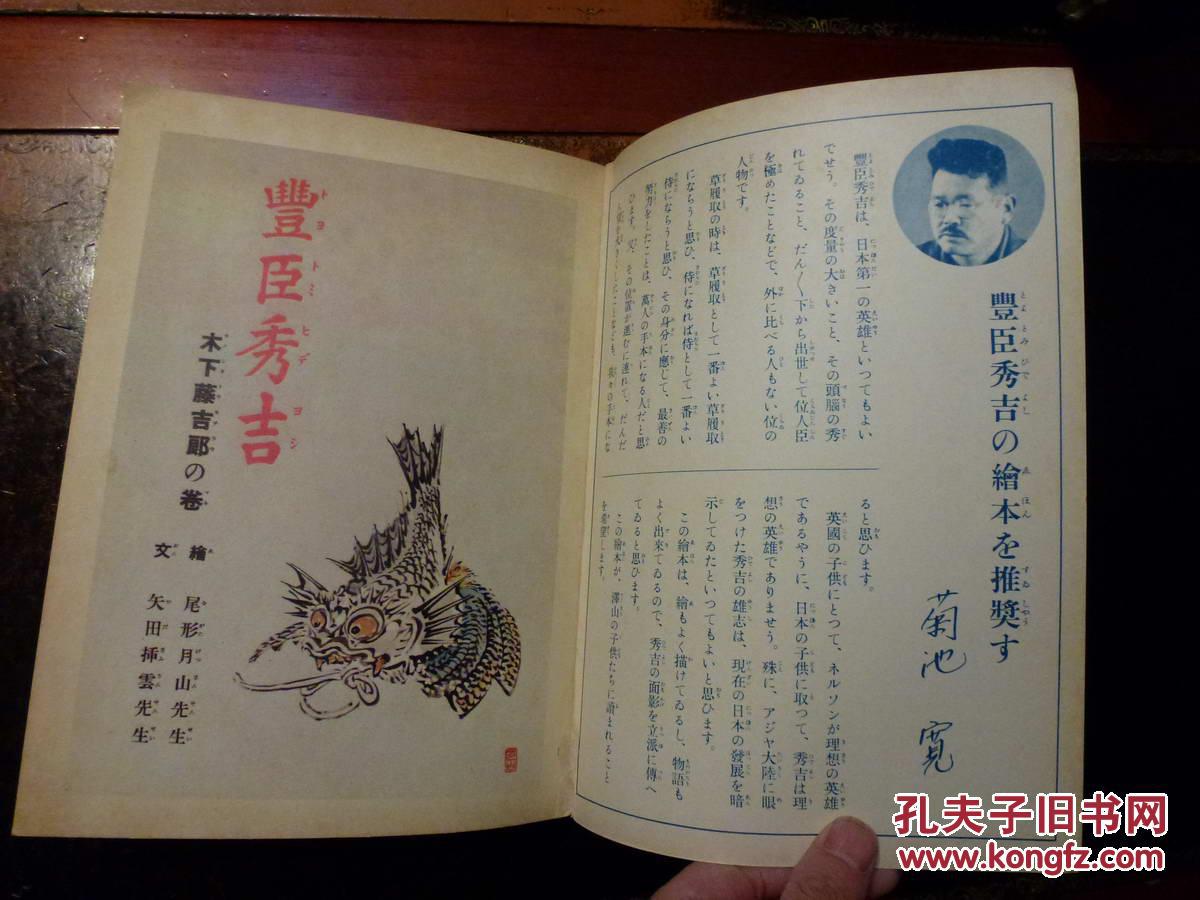 豐臣秀吉の繪本を推奬す
とよとみひでよし ゑほん すゐしやう
菊池 寛
豐臣秀吉は、日本第一の英雄といつてもよい
でせう。その度量の大きいこと、その頭腦の秀
れてゐること、だん〱下から出世して位人臣
を極めたことなどで、外に比べる人もない位の
人物です。
草履取の時は、草履取として一番よい草履取
になちうと思ひ、侍になれば侍として一番よい
侍にならうと思ひ、その身分に應じて、最善の
努力をしたことは、萬人の手本になる人だと思
ひます。又、その位置が進むに連れて、だんだ
大きくしたことなども、我々の手本にな
ると思ひます。
英國の子供にとつて、ネルソンが理想の英雄
であるやうに、日本の子供に取つて、秀吉は理
想の英雄でありませう。殊に、アジヤ大陸に眼
をつけた秀吉の雄志は、現在の日本の發展を暗
示してゐたといつてもよいと思ひます。
この繪本は、繪もよく描けてゐるし、物語も
よく出來てゐるので、秀吉の面影を立派に傳へ
てゐると思ひます。
この繪本が、澤山の子供たちに讀まれること
を希望します。
豐臣秀吉
トヨトミヒデヨシ
木下藤吉郎の卷
繪 尾形月山先生
文 矢田挿雲先生
孔夫子旧书网
www.kongfz.com